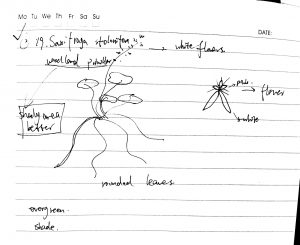 Mo Tu We Th Fr Sa Su
DATE:
19. Saxifraga stolonifera → white flowers.
woodland
shady area
better
pink
→ flower
white
rounded leaves
evergreen
shade.